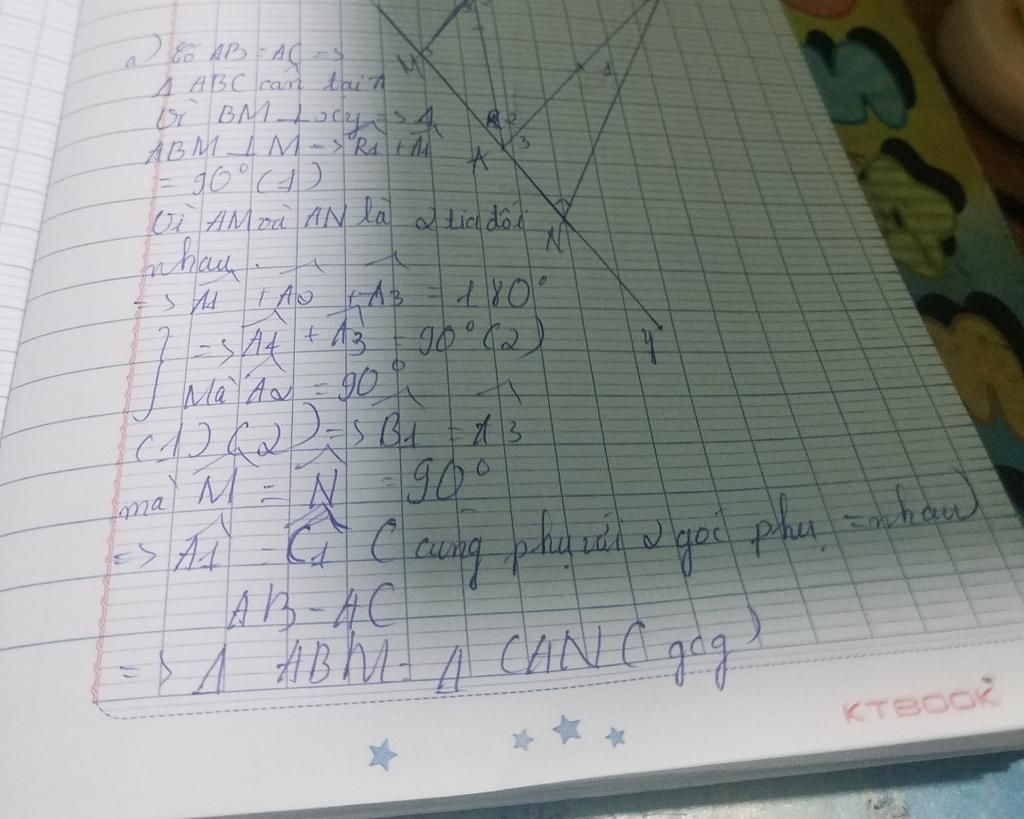 M
1
2
3
A
N
y
a) Có AB = AC =>
Δ ABC cân tại A
Vì BM ⊥ xy => Δ
ABM ⊥ M => B1 + A1
= 90° (1)
Vì AM và AN là 2 tia đối
nhau.
=> A1 + A2 + A3 = 180°
=> A1 + A3 = 90° (2)
Mà A2 = 90°
(1) (2) => B1 = A3
mà M = N = 90°
=> A1 = C1 (cùng phụ với 2 góc phụ = nhau)
AB = AC
=> Δ ABM = Δ CAN (gcg)
KTBOOK